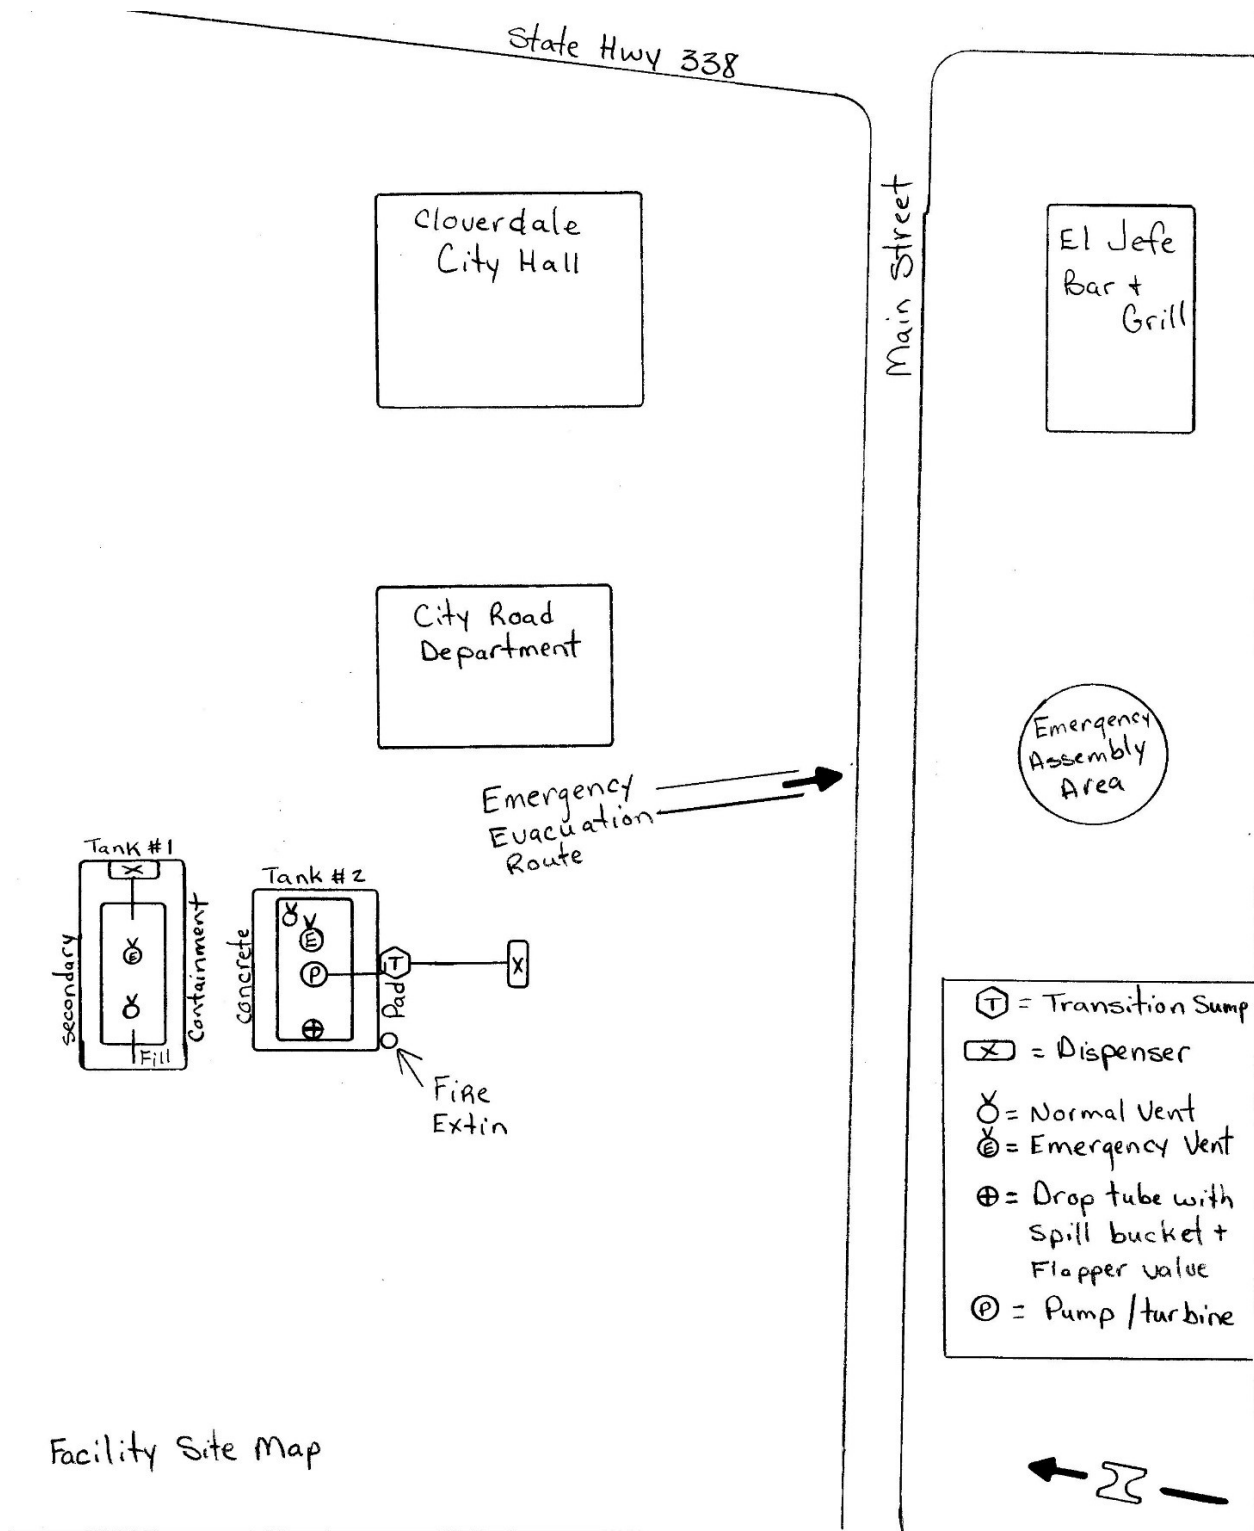 State Hwy 338
Cloverdale
City Hall
Main Street
El Jefe
Bar +
Grill
City Road
Department
Emergency
Assembly
Area
Emergency
Evacuation
Route
Tank #1
X
Secondary
Containment
E
Fill
Tank #2
Concrete
E
P
T
Pad
X
Fire
Extin
T = Transition Sump
X = Dispenser
= Normal Vent
E = Emergency Vent
= Drop tube with
Spill bucket +
Flapper value
P = Pump / turbine
Facility Site Map
N